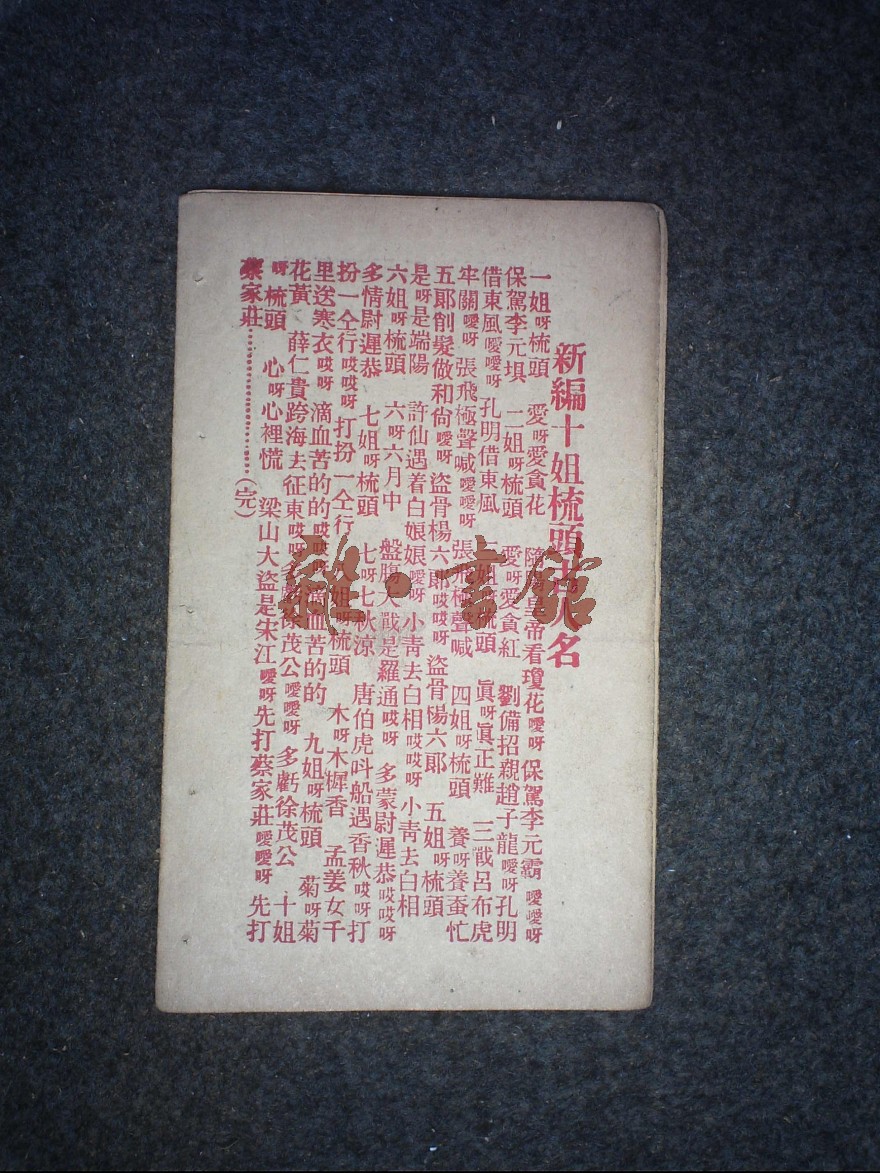 新編十姐梳頭古人名
一姐呀梳頭 愛呀愛貪花 隋煬皇帝看瓊花噯呀保駕李元霸 噯噯呀
保駕李元埧 二姐呀梳頭 愛呀愛貪紅 劉備招親趙子龍噯呀孔明
借東風噯噯呀孔明借東風 三姐呀梳頭 眞呀眞正難 三戰呂布虎
牢關噯呀 張飛極聲喊噯噯呀張飛極聲喊 四姐呀梳頭 養呀養蚕忙
五郞削髮做和尙噯呀盜骨楊六郞哎哎呀 盜骨楊六郞 五姐呀梳頭
是呀是端陽 許仙遇着白娘娘噯呀 小靑去白相哎哎呀 小靑去白相
六姐呀梳頭 六呀六月中 盤腸大戰是羅通哎呀 多蒙尉遲恭哎哎呀
多情尉遲恭 七姐呀梳頭 七呀七秋涼 唐伯虎叫船遇香秋哎呀打
扮一仝行哎哎呀打扮一仝行 八姐呀梳頭 木呀木樨香 孟姜女千
里送寒衣哎呀 滴血苦的的哎哎呀滴血苦的的 九姐呀梳頭 菊呀菊
花黃 薛仁貴跨海去征東哎呀多虧徐茂公噯噯呀 多虧徐茂公 十姐
呀梳頭 心呀心裡慌 梁山大盜是宋江噯呀先打蔡家莊噯噯呀 先打
蔡家莊……………………(完)
雜·書館